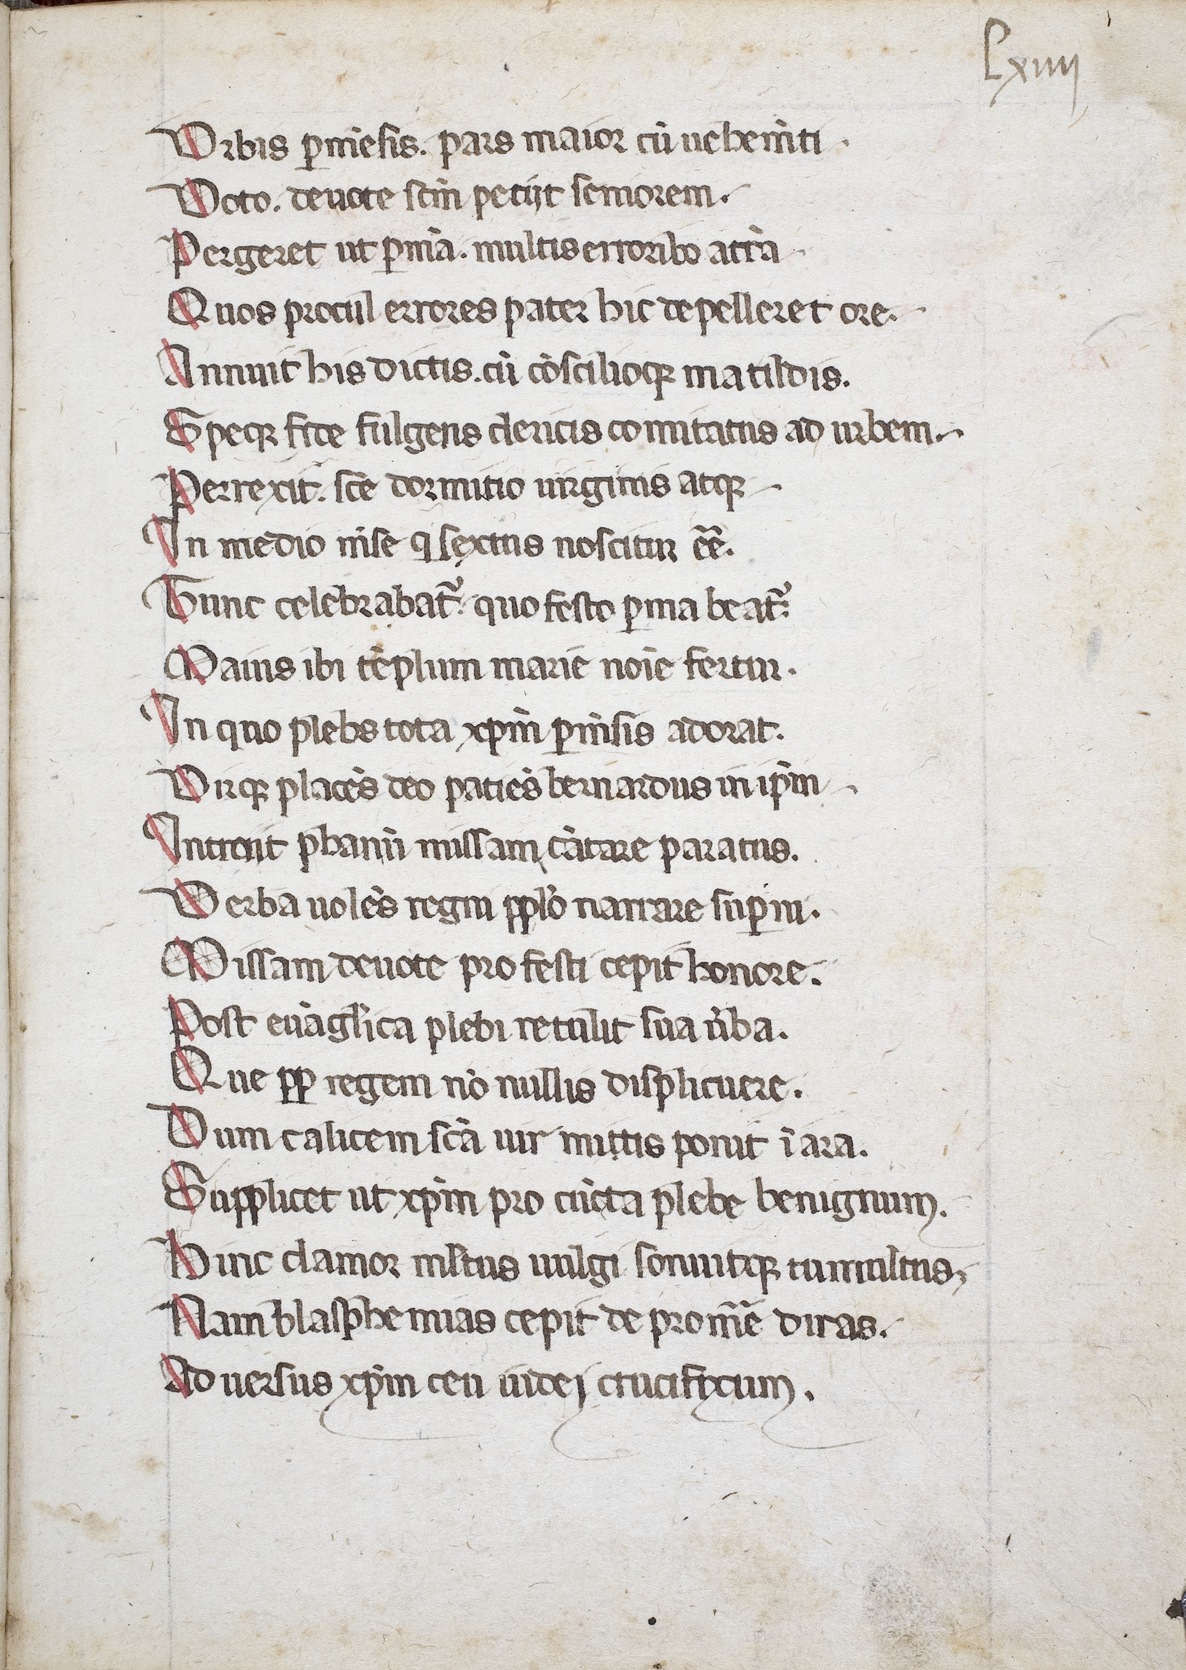 Lxiiii
Vrbis ꝑmēsis. pars maior cū uehemēti
Voto. deuote scm̄ petijt seniorem.
Pergeret ut ꝑmā. multis erroribꝰ atrā
Quos procul errores pater hic depelleret ore.
Annuit his dictis. cū cōscilioqꝫ matildis.
Speqꝫ fide fulgens clericis comitatus ad urbem.
Perrexit. sc̄e dormitio uirginis atqꝫ
In medio mēse q̄ sextus noscitur eē.
Tunc celebrabat᷑. quo festo ꝑma beat᷑.
Maius ibi tēplum marie noīe fertur.
In quo plebs tota xp̄m ꝑmēsis adorat.
Virqꝫ placēs deo patiēs bernardus in ip̄m
Introit ph̄anū missam cātare paratus.
Verba uolēs regni pplō narrare suꝑni.
Missam deuote pro festi cepit honore.
Post euāgl̄ica plebi retulit sua ūba.
Que ꝓp regem nō nullis displicuere.
Dum calicem sc̄a uir mittis ponit ī ara.
Supplicet ut xp̄m pro cūcta plebe benignum.
Hinc clamor ml̄tus uulgi sonuitqꝫ tumultus,
Nam blasphemias cepit de promē diras.
Aduersus xp̄m ceu iudej crucifixum.